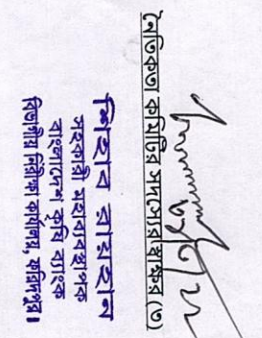 নৈতিকতা কমিটির সদস্যের স্বাক্ষর (৩)
শিহাব রায়হান
সহকারী মহাব্যবস্থাপক
বাংলাদেশ কৃষি ব্যাংক
বিভাগীয় নিরীক্ষা কার্যালয়, ফরিদপুর।